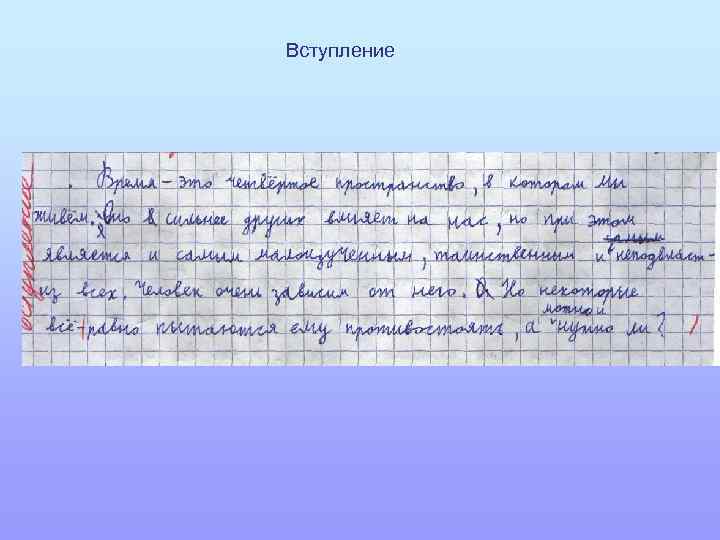 Вступление
. Время – это четвёртое пространство, в котором мы
живём. Оно в сильнее других влияет на нас, но при этом
является и самим малоизученным, таинственным и неподвласт-
из всех. Человек очень зависим от него. Но некоторые
можно и
всё-равно пытаются ему противостоять, а нужно ли?